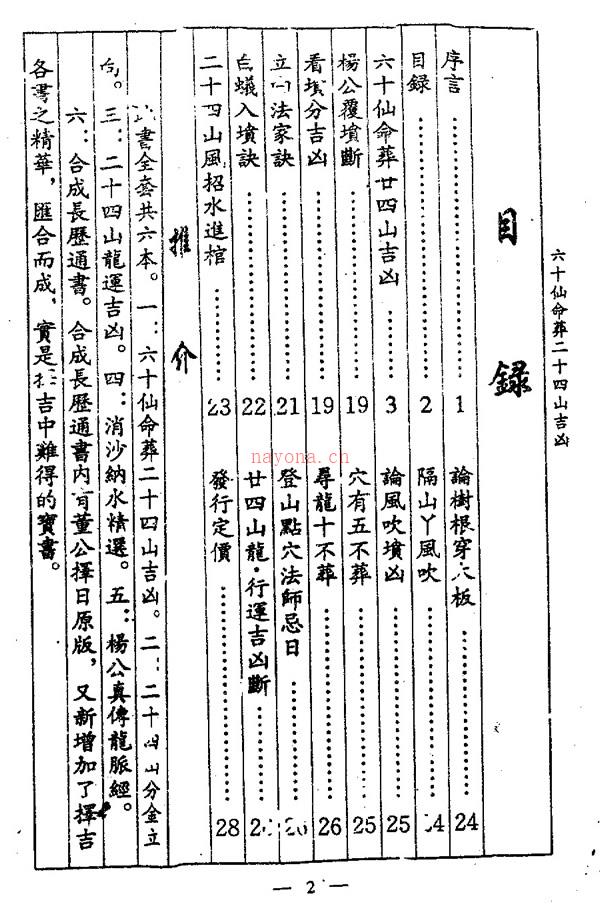 六十仙命葬二十四山吉凶
目錄
序言 1
目録 2
六十仙命葬廿四山吉凶 3
楊公覆墳斷 19
看墳分吉凶 19
立向法家訣 21
白蟻入墳訣 22
二十四山風招水進棺 23
論樹根穿 板 24
隔山丫風吹 4
論風吹墳凶 25
穴有五不葬 25
尋龍十不葬 26
登山點穴法師忌日 26
廿四山龍·行運吉凶斷 2
發行定價 28
推介
書全套共六本。一：六十仙命葬二十四山吉凶。二：二十四山分金立
向。三：二十四山龍運吉凶。四：消沙納水精選。五：楊公真傳龍脈經。
六：合成長歷通書。合成長歷通書內有董公擇日原版，又新增加了擇吉
各書之精華，匯合而成，實是 吉中難得的寶書。
nayona.cn
— 2 —